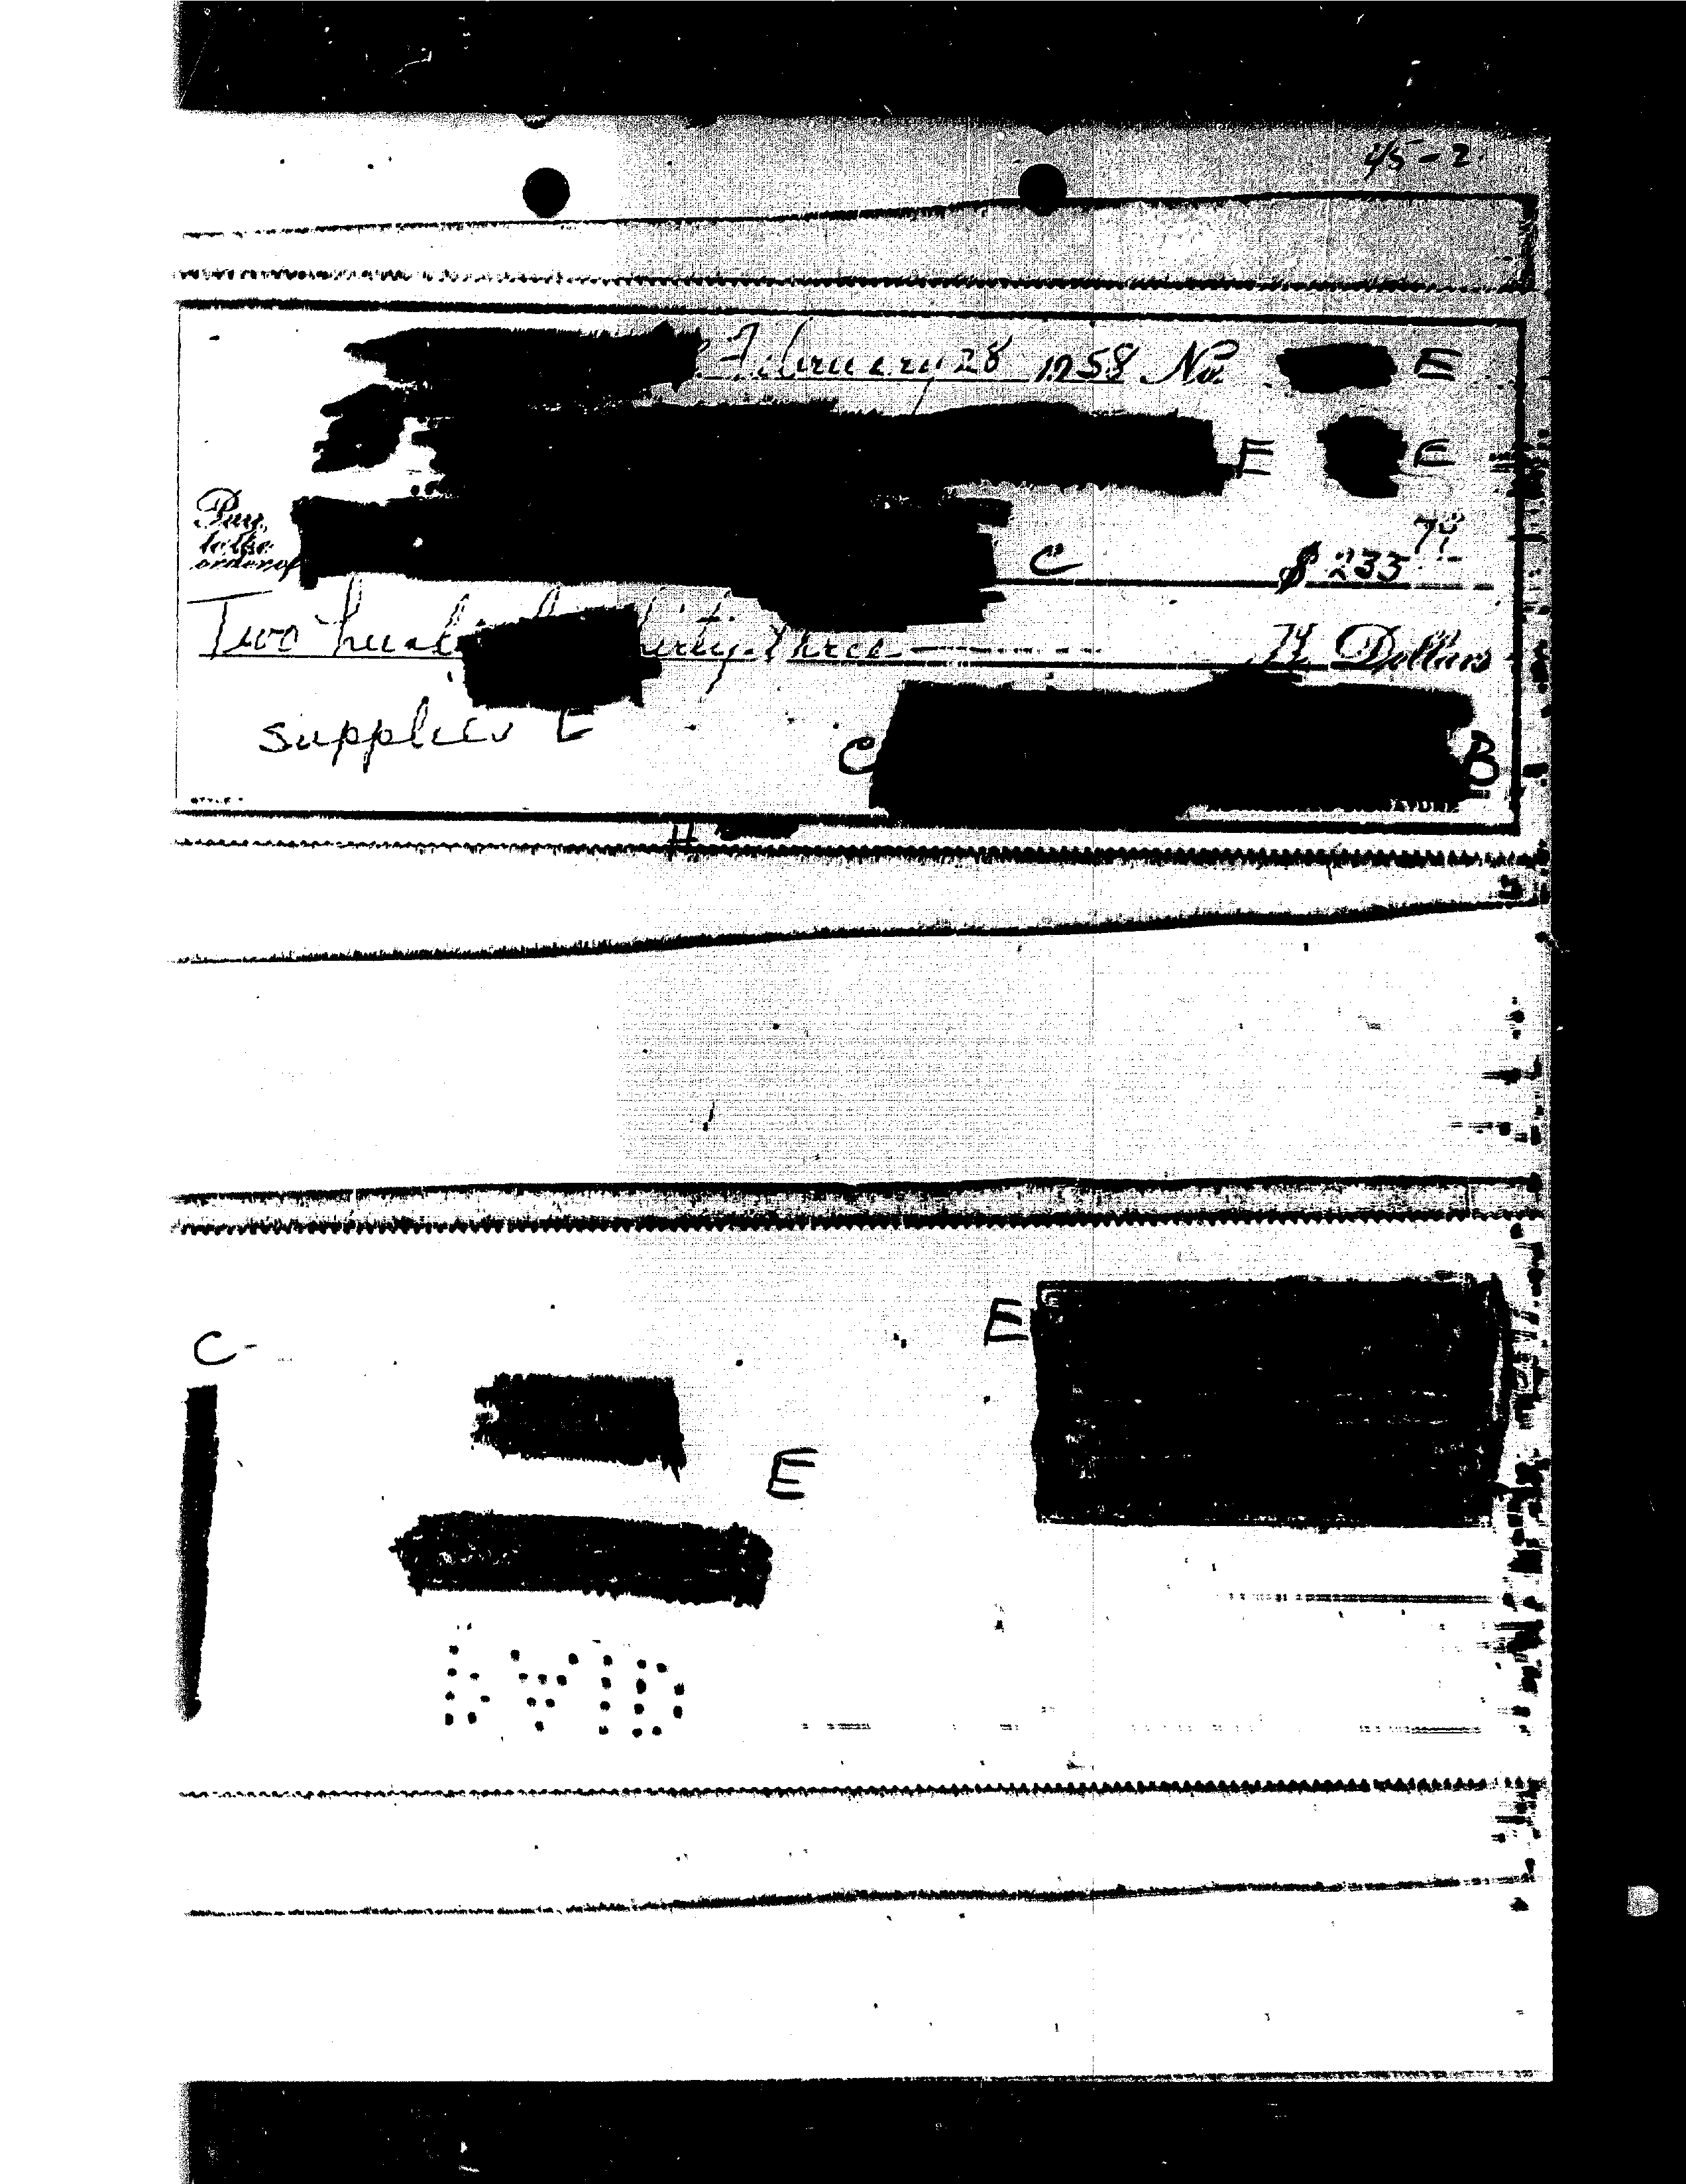 45-2
February 28 1958 No. E
E E
Pay
to the
order of C $ 233
Two hund thirty-three Dollars
supplies E
C B
H
E
C
E
PAID